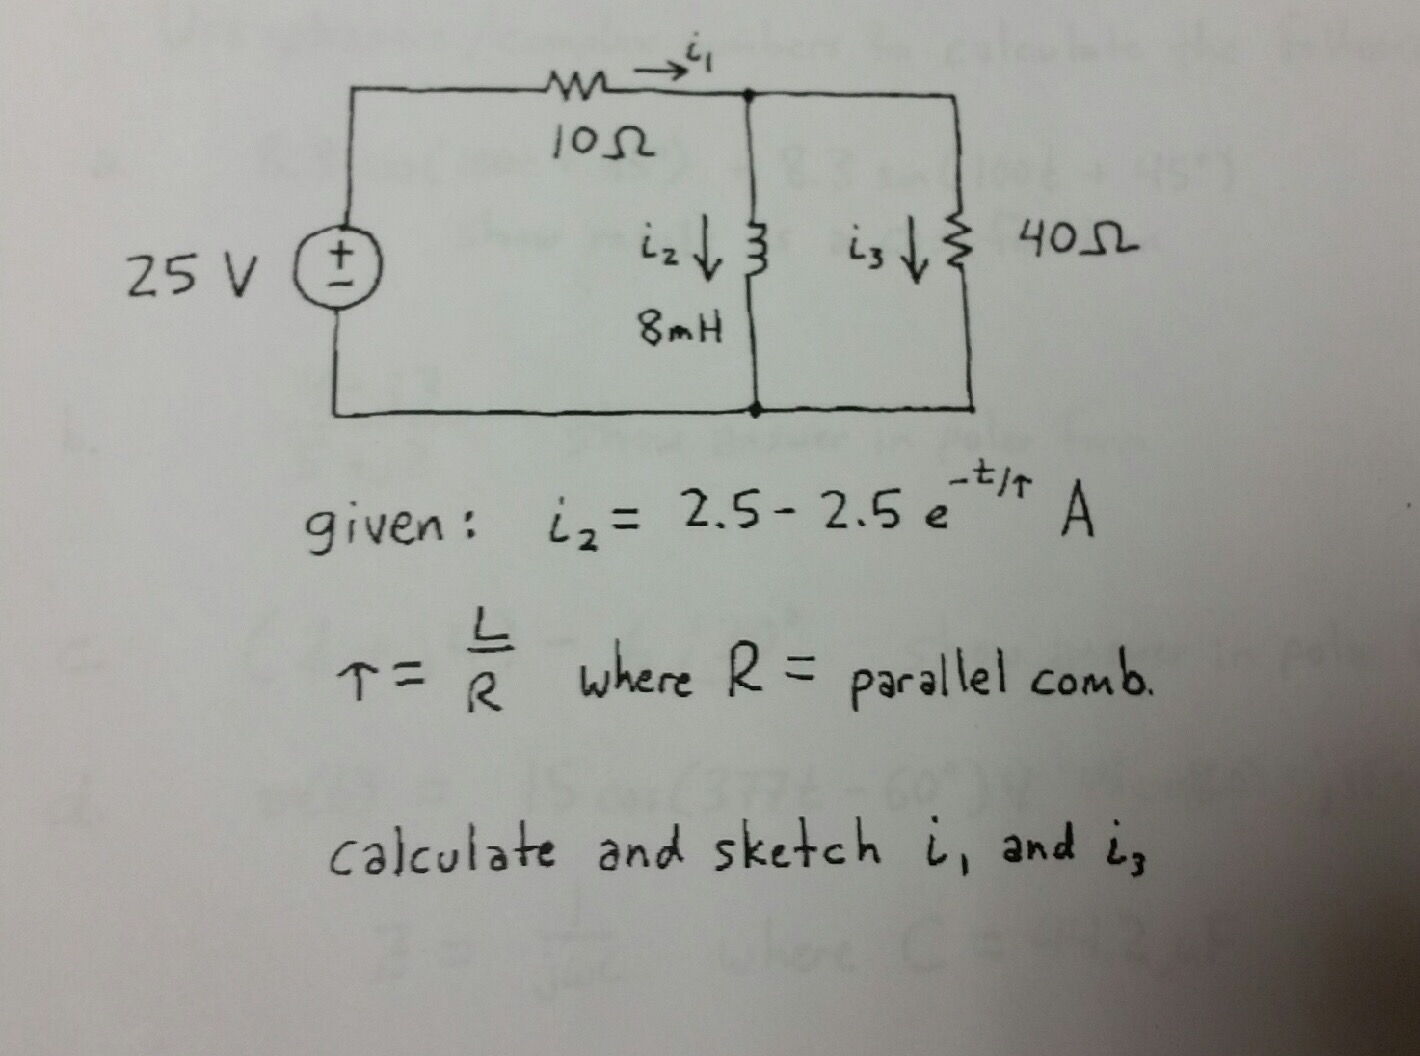 i₁
10Ω
25 V + − i₂ i₃ 40Ω
8mH
given: i₂ = 2.5 - 2.5 e^-t/τ A
τ = L/R where R = parallel comb.
calculate and sketch i₁ and i₃